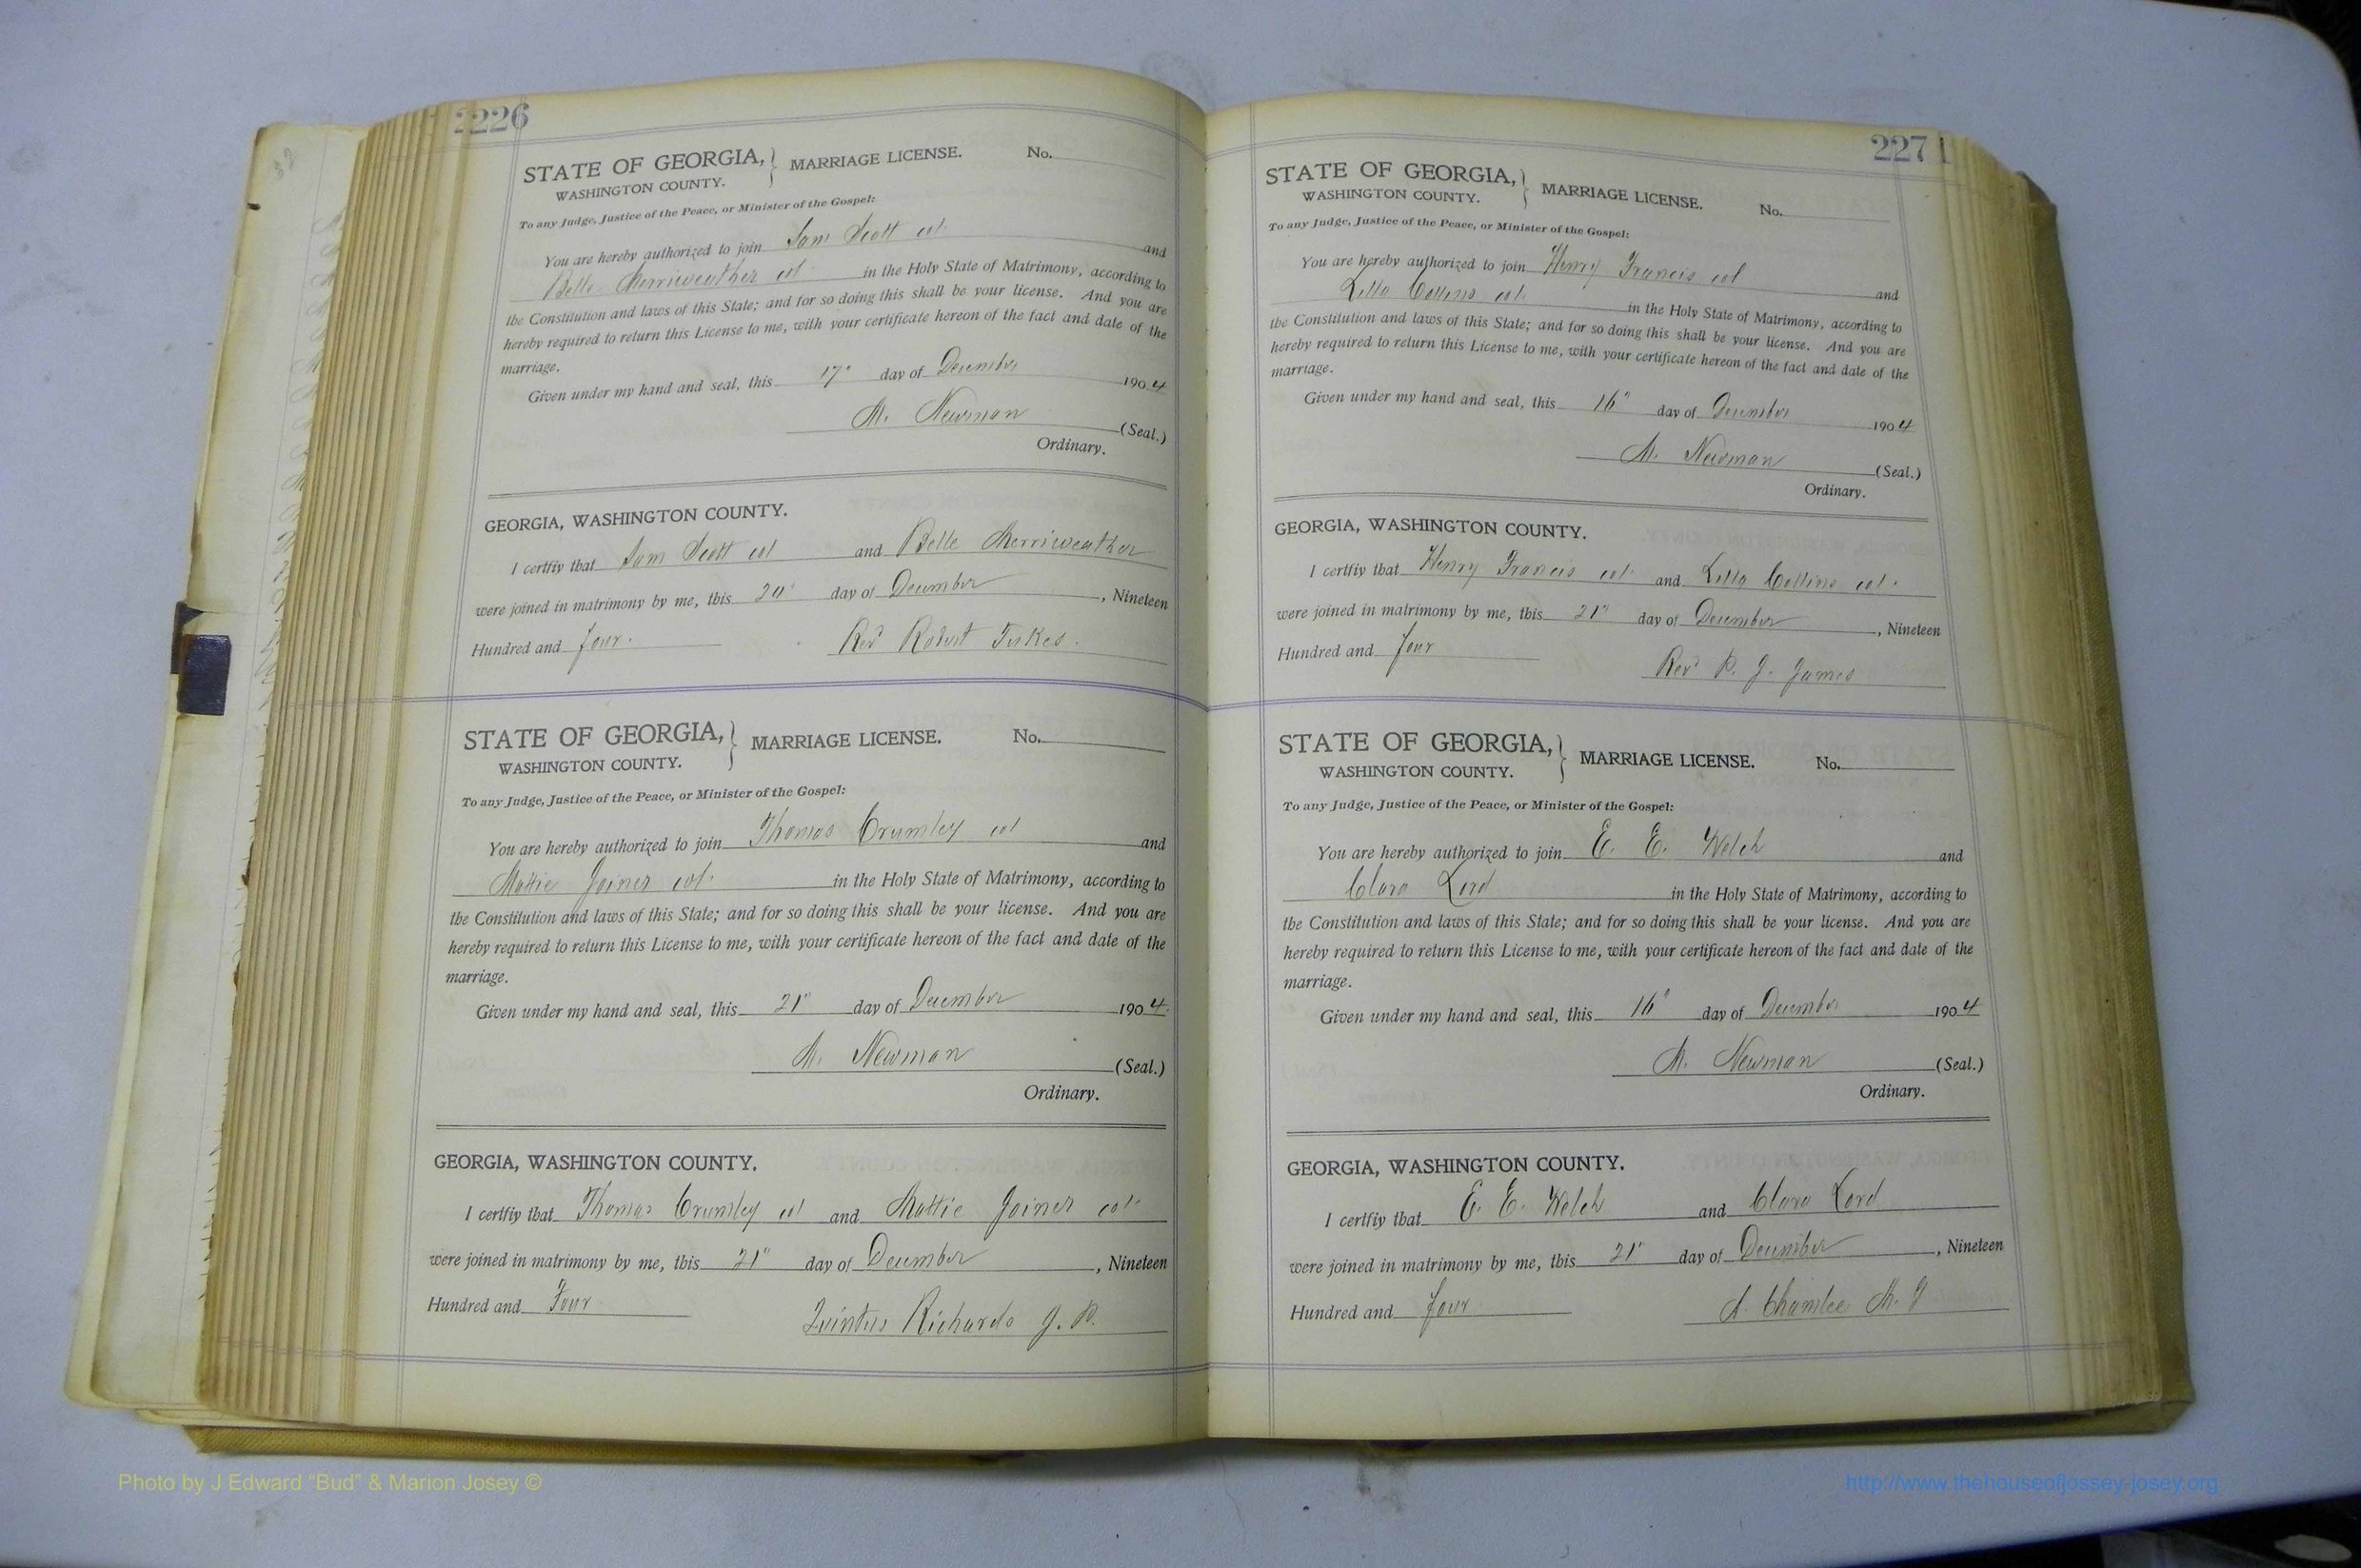 226
STATE OF GEORGIA, } MARRIAGE LICENSE. No.
WASHINGTON COUNTY.
To any Judge, Justice of the Peace, or Minister of the Gospel:
You are hereby authorized to join Sam Scott col and
Belle Merriweather col in the Holy State of Matrimony, according to
the Constitution and laws of this State; and for so doing this shall be your license. And you are
hereby required to return this License to me, with your certificate hereon of the fact and date of the
marriage.
Given under my hand and seal, this 17" day of December 1904
M. Newman (Seal.)
Ordinary.
GEORGIA, WASHINGTON COUNTY.
I certfiy that Sam Scott col and Belle Merriweather
were joined in matrimony by me, this day of December, Nineteen
Hundred and four. Rev Robert
STATE OF GEORGIA, } MARRIAGE LICENSE. No.
WASHINGTON COUNTY.
To any Judge, Justice of the Peace, or Minister of the Gospel:
You are hereby authorized to join Thomas Crumley col and
Mattie Joiner col. in the Holy State of Matrimony, according to
the Constitution and laws of this State; and for so doing this shall be your license. And you are
hereby required to return this License to me, with your certificate hereon of the fact and date of the
marriage.
Given under my hand and seal, this 21" day of December 1904.
M. Newman (Seal.)
Ordinary.
GEORGIA, WASHINGTON COUNTY.
I certfiy that Thomas Crumley col and Mattie Joiner col.
were joined in matrimony by me, this 21" day of December, Nineteen
Hundred and Four Richards J. P.
227
STATE OF GEORGIA, } MARRIAGE LICENSE. No.
WASHINGTON COUNTY.
To any Judge, Justice of the Peace, or Minister of the Gospel:
You are hereby authorized to join Henry Francis col and
Lilla Collins col. in the Holy State of Matrimony, according to
the Constitution and laws of this State; and for so doing this shall be your license. And you are
hereby required to return this License to me, with your certificate hereon of the fact and date of the
marriage.
Given under my hand and seal, this 16" day of December 1904
M. Newman (Seal.)
Ordinary.
GEORGIA, WASHINGTON COUNTY.
I certfiy that Henry Francis col. and Lilla Collins col.
were joined in matrimony by me, this 21" day of December, Nineteen
Hundred and four Rev P. J. James
STATE OF GEORGIA, } MARRIAGE LICENSE. No.
WASHINGTON COUNTY.
To any Judge, Justice of the Peace, or Minister of the Gospel:
You are hereby authorized to join E. E. Welch and
Clara Lord in the Holy State of Matrimony, according to
the Constitution and laws of this State; and for so doing this shall be your license. And you are
hereby required to return this License to me, with your certificate hereon of the fact and date of the
marriage.
Given under my hand and seal, this 16" day of December 1904
M. Newman (Seal.)
Ordinary.
GEORGIA, WASHINGTON COUNTY.
I certfiy that E. E. Welch and Clara Lord
were joined in matrimony by me, this 21" day of December, Nineteen
Hundred and four Chamlee M. G
Photo by J Edward "Bud" & Marion Josey ©
http://www.thehouseofjossey-josey.org